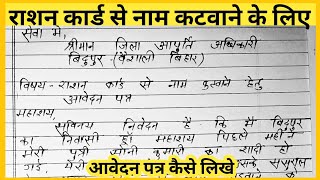 राशन कार्ड से नाम कटवाने के लिए
सेवा में,
श्रीमान जिला आपूर्ति अधिकारी
बिदुपुर (वैशाली बिहार)
विषय - राशन कार्ड से नाम कटवाने हेतु
आवेदन पत्र
महाशय,
सविनय निवेदन है कि मैं बिदुपुर
का निवासी हूँ। महाशय पिछले महीने
मेरी पुत्री सोनी कुमारी का शादी हो
गई. मेरी ससुराल
आवेदन पत्र कैसे लिखे